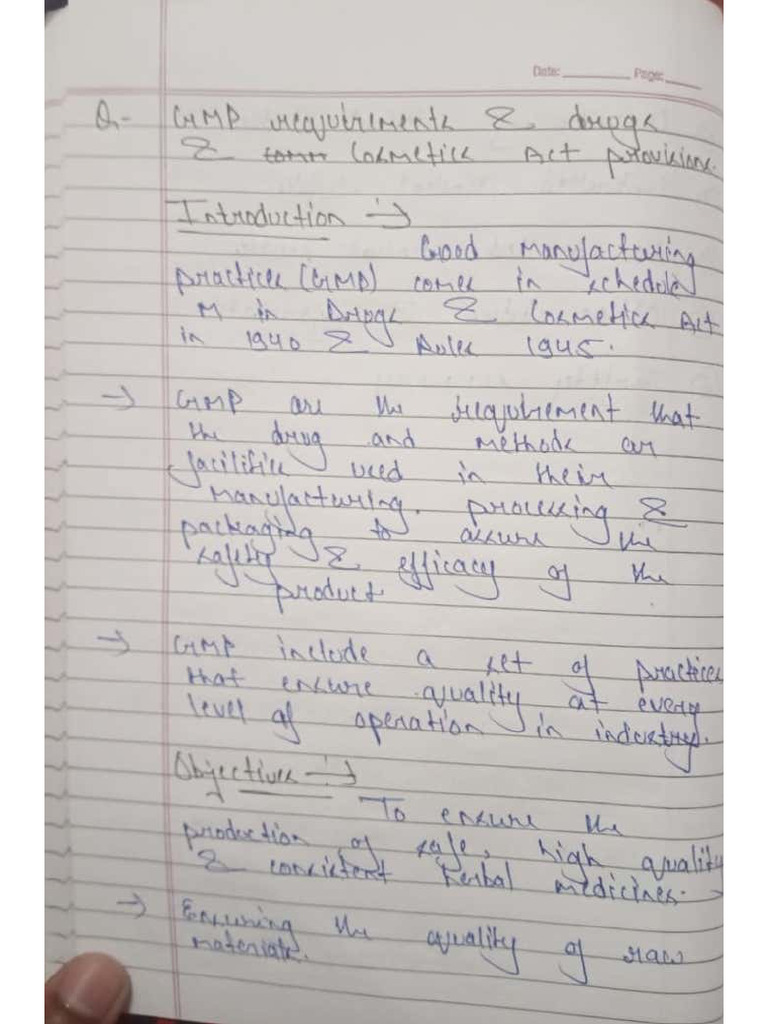 Date: ________ Page: ____
Q- GMP requirements & drugs
& Cosmetics Act provisions.
Introduction →
Good manufacturing
practices (GMP) comes in schedule
M in Drugs & Cosmetics Act
in 1940 & Rules 1945.
→ GMP are the requirement that
the drug and methods or
facilities used in their
manufacturing. processing &
packaging to assure the
safety & efficacy of the
product
→ GMP include a set of practices
that ensure quality at every
level of operation in industry.
Objectives →
To ensure the
production of safe, high quality
& consistent herbal medicines.
→ Ensuring the quality of raw
materials.